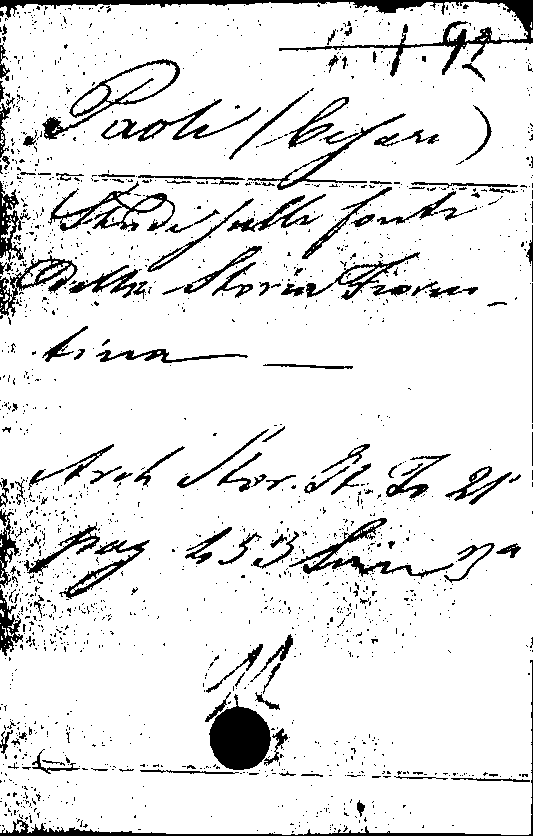 1.92
Paoli (Cesare)
Studi sulle fonti
della Storia Fioren-
tina
Arch Stor. It. To 21
pag 453 Serie 3ª
M